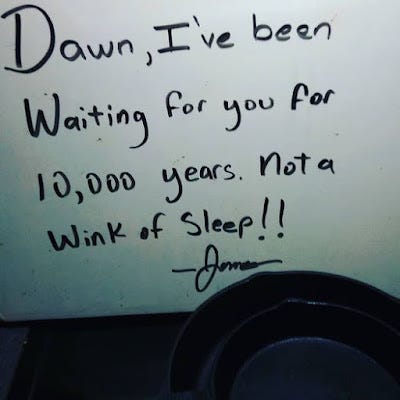 Dawn, I've been
Waiting for you for
10,000 years. Not a
Wink of Sleep!!